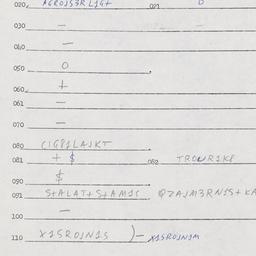 020, AGROJS3RL1G+ 021 D
030 —
040 —
050 O
060 +
061 —
070 —
080 C1G81LAJKT
081 + $ 082 TROWR1K8
090 $
091 S+ALAT+S+AM1S QZAJM3RN1S+KA
100 —
110 X1SROJN1S )— X1SROJN1M